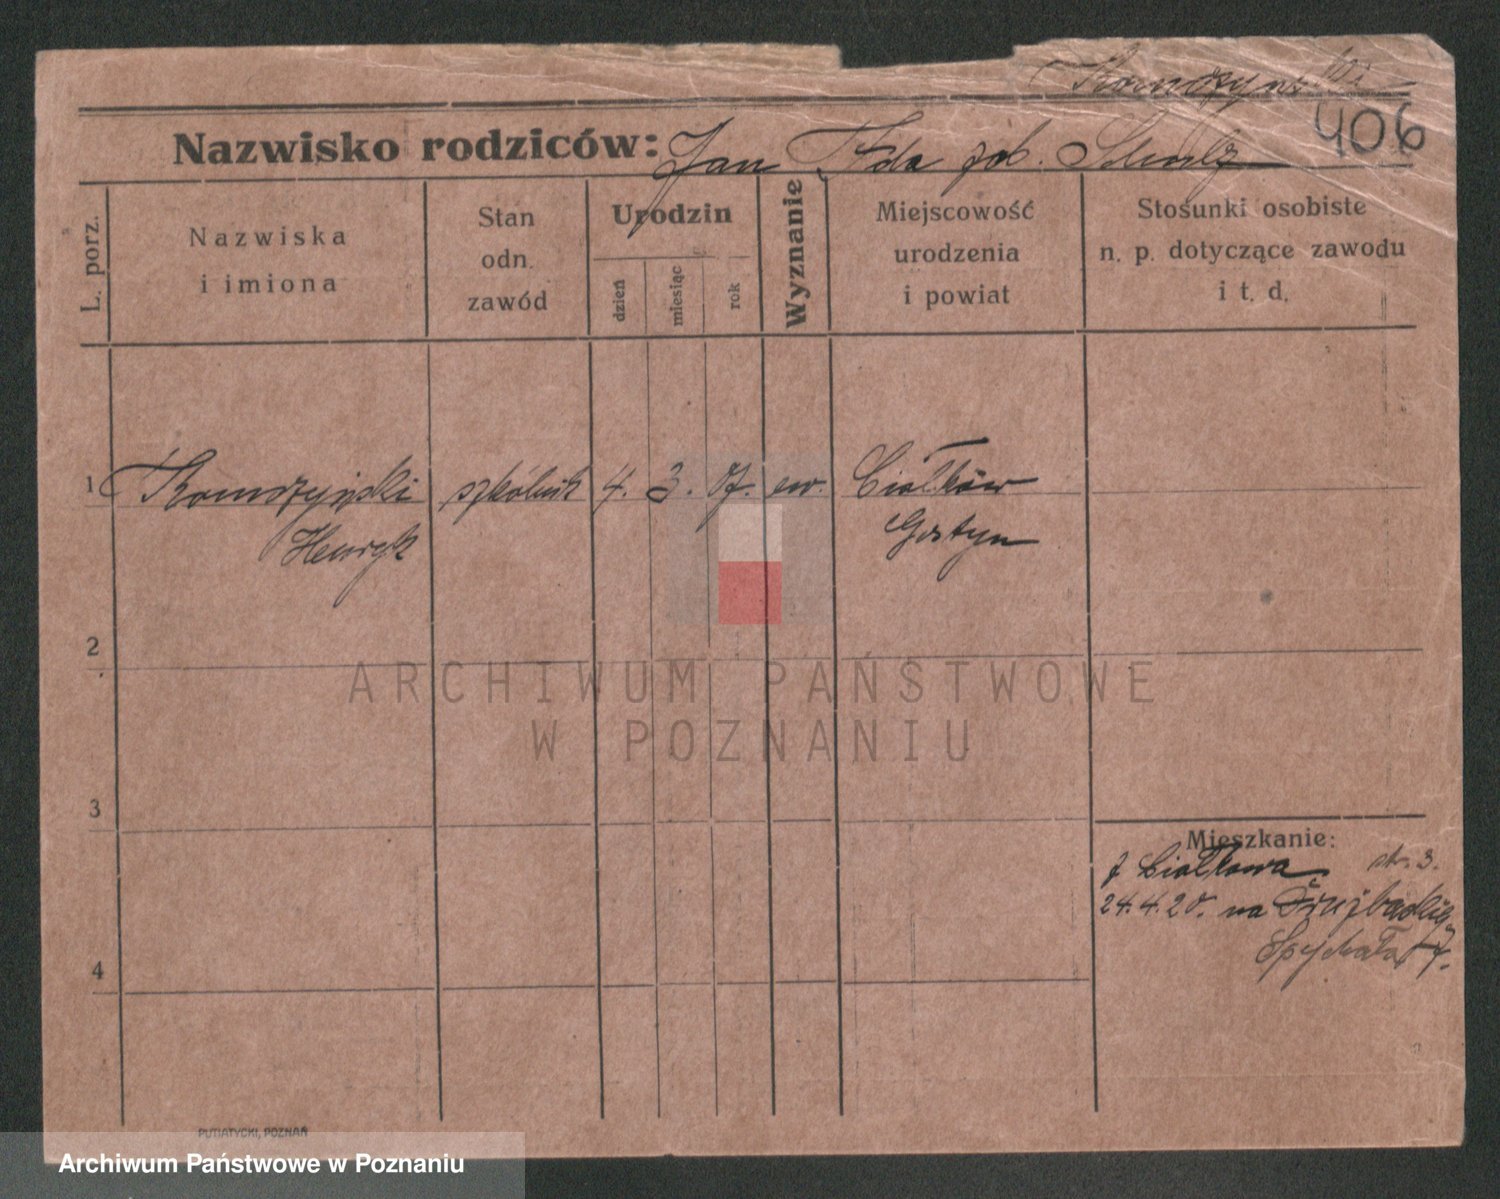 406
Nazwisko rodziców: Jan Ida zd. Schulz
L. porz.
Nazwiska
i imiona
Stan
odn.
zawód
Urodzin
dzień
miesiąc
rok
Wyznanie
Miejscowość
urodzenia
i powiat
Stosunki osobiste
n. p. dotyczące zawodu
i t. d.
1 szkolnik 4. 3. 07. ew. Ciołków
Henryk Gostyn
2
3
4
Mieszkanie:
z Ciołkowa str. 3.
24.4.20. na
Spychała 7.
PUTIATYCKI, POZNAŃ
ARCHIWUM PAŃSTWOWE
W POZNANIU
Archiwum Państwowe w Poznaniu